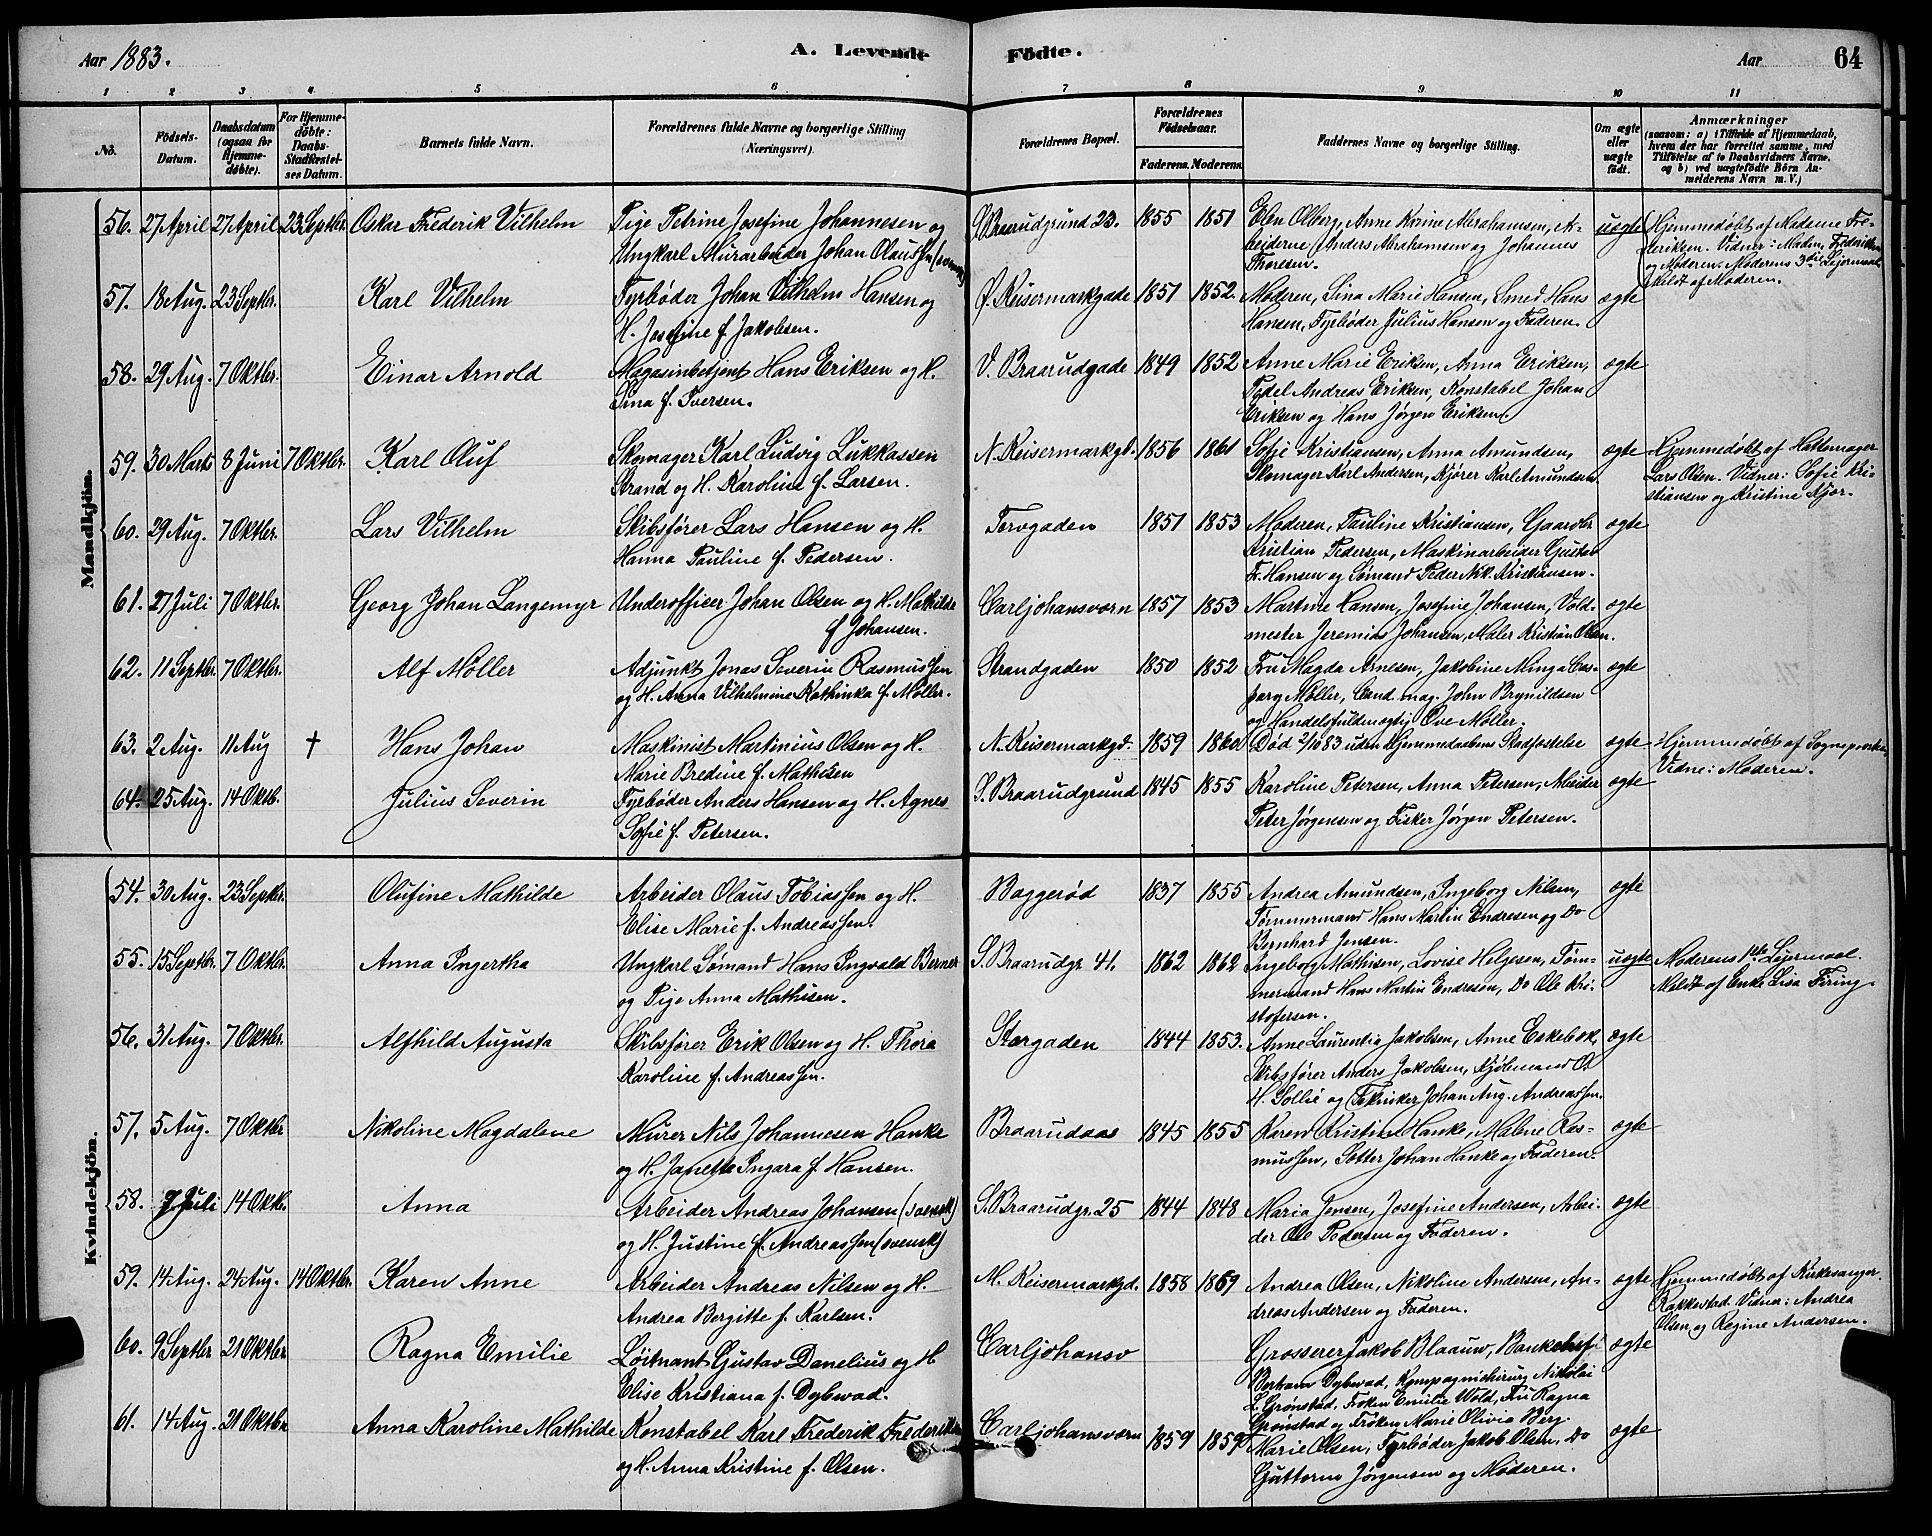 Aar 1883.
A. Levende
Födte.
Aar
64
1 2 3 4 5 6 7 8 9 10 11
No.
Födsels-
Datum.
Daabsdatum
(ogsaa for
Hjemme-
döbte).
For Hjemme-
döbte:
Daabs-
Stadfæstel-
ses Datum.
Barnets fulde Navn.
Forældrenes fulde Navne og borgerlige Stilling
(Næringsvei).
Forældrenes Bopæl.
Forældrenes
Födselsaar.
Faderens. Moderens.
Faddernes Navne og borgerlige Stilling.
Om ægte
eller
uægte
født.
Anmærkninger
(saasom: a) i Tilfælde af Hjemmedaab,
hvem der har forrettet samme, med
Tilföielse af to Daabsvidners Navne.
og b) ved uægtefödte Börn An-
melderens Navn m. V.)
Mandkjön.
56. 27 April 27 April 23 Septbr. Oskar Frederik Vilhelm
Pige Petrine Josefine Johannesen og
Ungkarl Murarbeider Johan Olaussen (svensk)
S. Braarudgrund 23. 1855 1851
Elen Olberg, Anne Karine Abrahamsen, Ar-
beiderne Anders Abrahamsen og Johannes
Thoresen.
uægte
Hjemmedøbt af Madame Fre-
deriksen. Vidner: Madm. Frederiksen
og Moderen. Moderens 3die Leiermaal.
Meldt af Moderen.
57. 18 Aug. 23 Septbr. Karl Vilhelm
Fyrbøder Johan Vilhelm Hansen og
H. Josefine f. Jakobsen.
Ø. Keisermarkgade 1851 1852.
Moderen, Lina Marie Hansen, Smed Hans
Hansen, Fyrbøder Julius Hansen og Faderen.
ægte
58. 29 Aug. 7 Oktbr. Einar Arnold
Magasinbetjent Hans Eriksen og H.
Lina f. Iversen.
V. Braarudgade 1849 1852
Anne Marie Eriksen, Anna Eriksen,
Pedel Andreas Eriksen, Konstabel Johan
Eriksen og Hans Jørgen Eriksen.
ægte
59. 30 Marts 8 Juni 7 Oktbr. Karl Oluf
Skomager Karl Ludvig Lukkassen
Strand og H. Karoline f. Larsen.
N. Keisermarkgd. 1856 1861
Sofie Kristiansen, Anna Amundsen,
Skomager Karl Andersen, Kjører Karl Amundsen
ægte
Hjemmedøbt af Hattemager
Lars Olsen. Vidner: Sofie Kri-
stiansen og Kristine Kjør.
60. 29 Aug. 7 Oktbr. Lars Vilhelm
Skibsfører Lars Hansen og H.
Hanna Pauline f. Pedersen.
Torvgaden 1851 1853
Moderen, Pauline Kristiansen, Gaardbr.
Kristian Pedersen, Maskinarbeider Gustav
Fr. Hansen og Sømand Peder Nik. Kristiansen.
ægte
61. 27 Juli 7 Oktbr. Georg Johan Langemyr
Underofficer Johan Olsen og H. Mathilde
f. Johansen.
Carljohansværn 1857 1853
Martine Hansen, Josefine Johansen, Vold-
mester Jeremias Johansen, Maler Kristian Olsen.
ægte
62. 11 Septbr. 7 Oktbr. Alf Møller
Adjunkt Jonas Severin Rasmussen
og H. Anna Vilhelmine Kathinka f. Møller.
Strandgaden 1850 1852
Fru Magda Arnesen, Jakobine Minga Cas-
parg Møller, Cand. mag. John Brynildsen
og Handelsfuldmægtig Ove Møller.
ægte
63. 2 Aug. 11 Aug † Hans Johan
Maskinist Martinius Olsen og H.
Marie Bredine f. Mathisen
N. Keisermarkgd. 1859 1860
Død 2/10 83 uden Hjemmedaabens Stadfæstelse
ægte
Hjemmedøbt af Sognepræsten
Vidne: Moderen.
64. 25 Aug. 14 Oktb. Julius Severin
Fyrbøder Anders Hansen og H. Agnes
Sofie f. Petersen.
S. Braarudgrund 1845 1855
Karoline Petersen, Anna Petersen, Arbeider
Peter Jørgensen og Fisker Jørgen Petersen.
ægte
Kvindekjön.
54. 30 Aug. 23 Septbr. Olufine Mathilde
Arbeider Olaus Tobiassen og H.
Elise Marie f. Andreassen.
Baggerød 1837 1855
Andrea Amundsen, Ingeborg Nilsen,
Tømmermand Hans Martin Endresen og Do
Bernhard Jensen.
ægte
55. 15 Septbr. 7 Oktbr. Anna Ingertha
Ungkarl Sømand Hans Ingvald Berner
og Pige Anna Mathisen.
S. Braarudgr. 41. 1862 1862
Ingeborg Mathisen, Lovise Helgesen, Tøm-
mermand Hans Martin Endresen, Do Ole Kri-
stofersen.
uægte
Moderens 1ste Leiermaal.
Meldt af Enke Lisa Firing.
56. 31 Aug. 7 Oktbr. Alfhild Augusta
Skibsfører Erik Olsen og H. Thora
Karoline f. Andreassen.
Storgaden 1844 1853.
Anne Laurentia Jakobsen, Anne Eskebæk,
Skibsfører Anders Jakobsen, Kjøbmand O.
H. Sollie og Tekniker Johan Aug. Andreassen.
ægte
57. 5 Aug. 7 Oktbr Nikoline Magdalene
Murer Nils Johannesen Hanke
og H. Janette Ingara f. Hansen.
Braarudaas 1845 1855
Karen Kristine Hanke, Malene Ras-
mussen, Lotter Johan Hanke og Faderen.
ægte
58. 7 Juli 14 Oktb. Anna
Arbeider Andreas Johansen (svensk)
og H. Justine f. Andreassen (svensk)
S. Braarudgr. 25 1844 1848
Maria Jensen, Josefine Andersen, Arbei-
der Ole Pedersen og Faderen.
ægte
59. 14 Aug. 24 Aug. 14 Oktbr. Karen Anne
Arbeider Andreas Nilsen og H.
Andrea Bergitte f. Karlsen.
M. Keisermarkgd. 1858 1859
Andrea Olsen, Nikoline Andersen, An-
dreas Andersen og Faderen.
ægte
Hjemmedøbt af Kirkesanger
Rakkestad. Vidner: Andrea
Olsen og Regine Andersen.
60. 9 Septbr 21 Oktbr Ragna Emilie
Løitnant Gustav Danelius og H
Elise Kristiana f. Dybwad.
Carljohansv
Grosserer Jakob Blaauw, Bankchef
Bertram Dybwad, Kompagnichirurg Nikolai
L. Grønstad, Frøken Emilie Wold, Fru Ragna
Grønstad og Frøken Marie Olivia Berg.
ægte
61. 14 Aug. 21 Oktbr Anna Karoline Mathilde
Konstabel Karl Frederik Frederiksen
og H. Anna Kristine f. Olsen.
Carljohansværn 1859 1859
Marie Olsen, Fyrbøder Jakob Olsen, Do
Guttorm Jørgensen og Moderen.
ægte